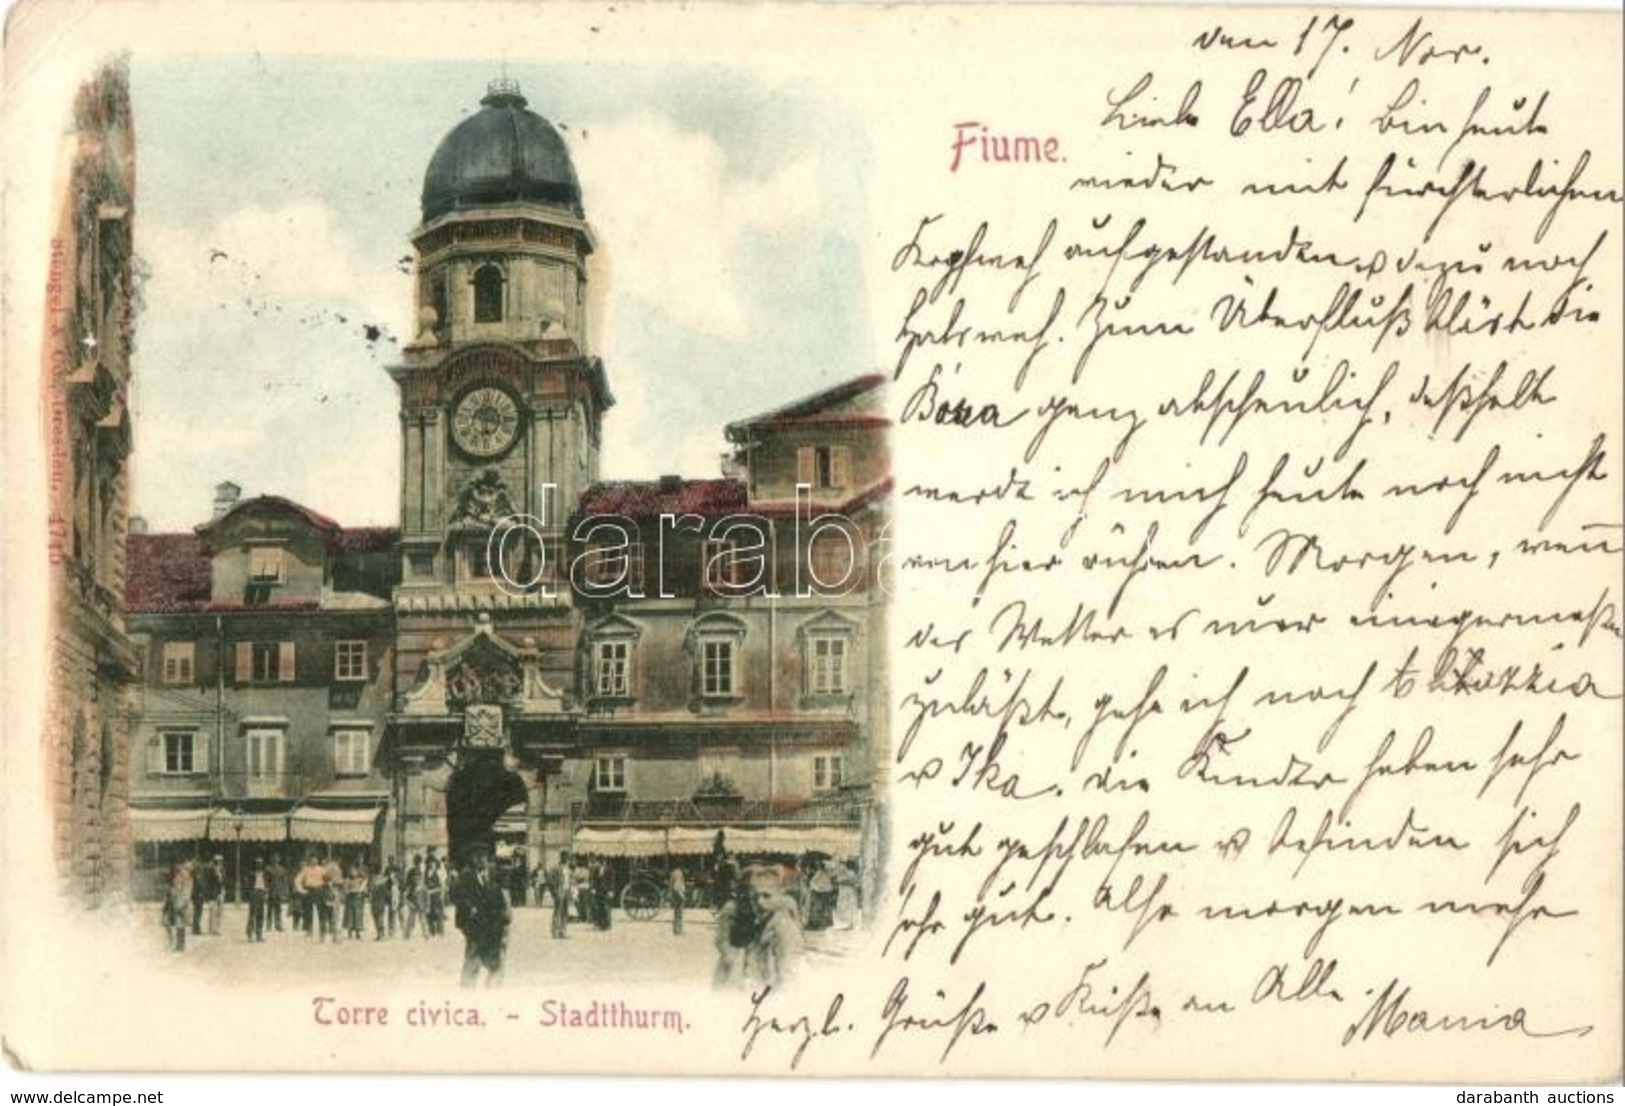 den 17. Nov.
Fiume.
Liebe Ella! Bin heute
wieder mit fürchterlichen
Kopfweh aufgestanden u dazu noch
Halsweh. Zum Überfluß bläst die
Bora ganz abscheulich, deßhalb
werde ich mich heute noch nicht
von hier rühren. Morgen, wenn
das Wetter es nur einigermaßen
zuläßt, gehe ich nach Abbazzia
u Ika. Die Kinder haben sehr
gut geschlafen u befinden sich
sehr gut. Also morgen mehr
Herzl. Grüße u Küße an Alle.
Mama
Torre civica. - Stadtthurm.
Stengel & Co., Dresden
darabanth
delcampe.net
darabanth auctions